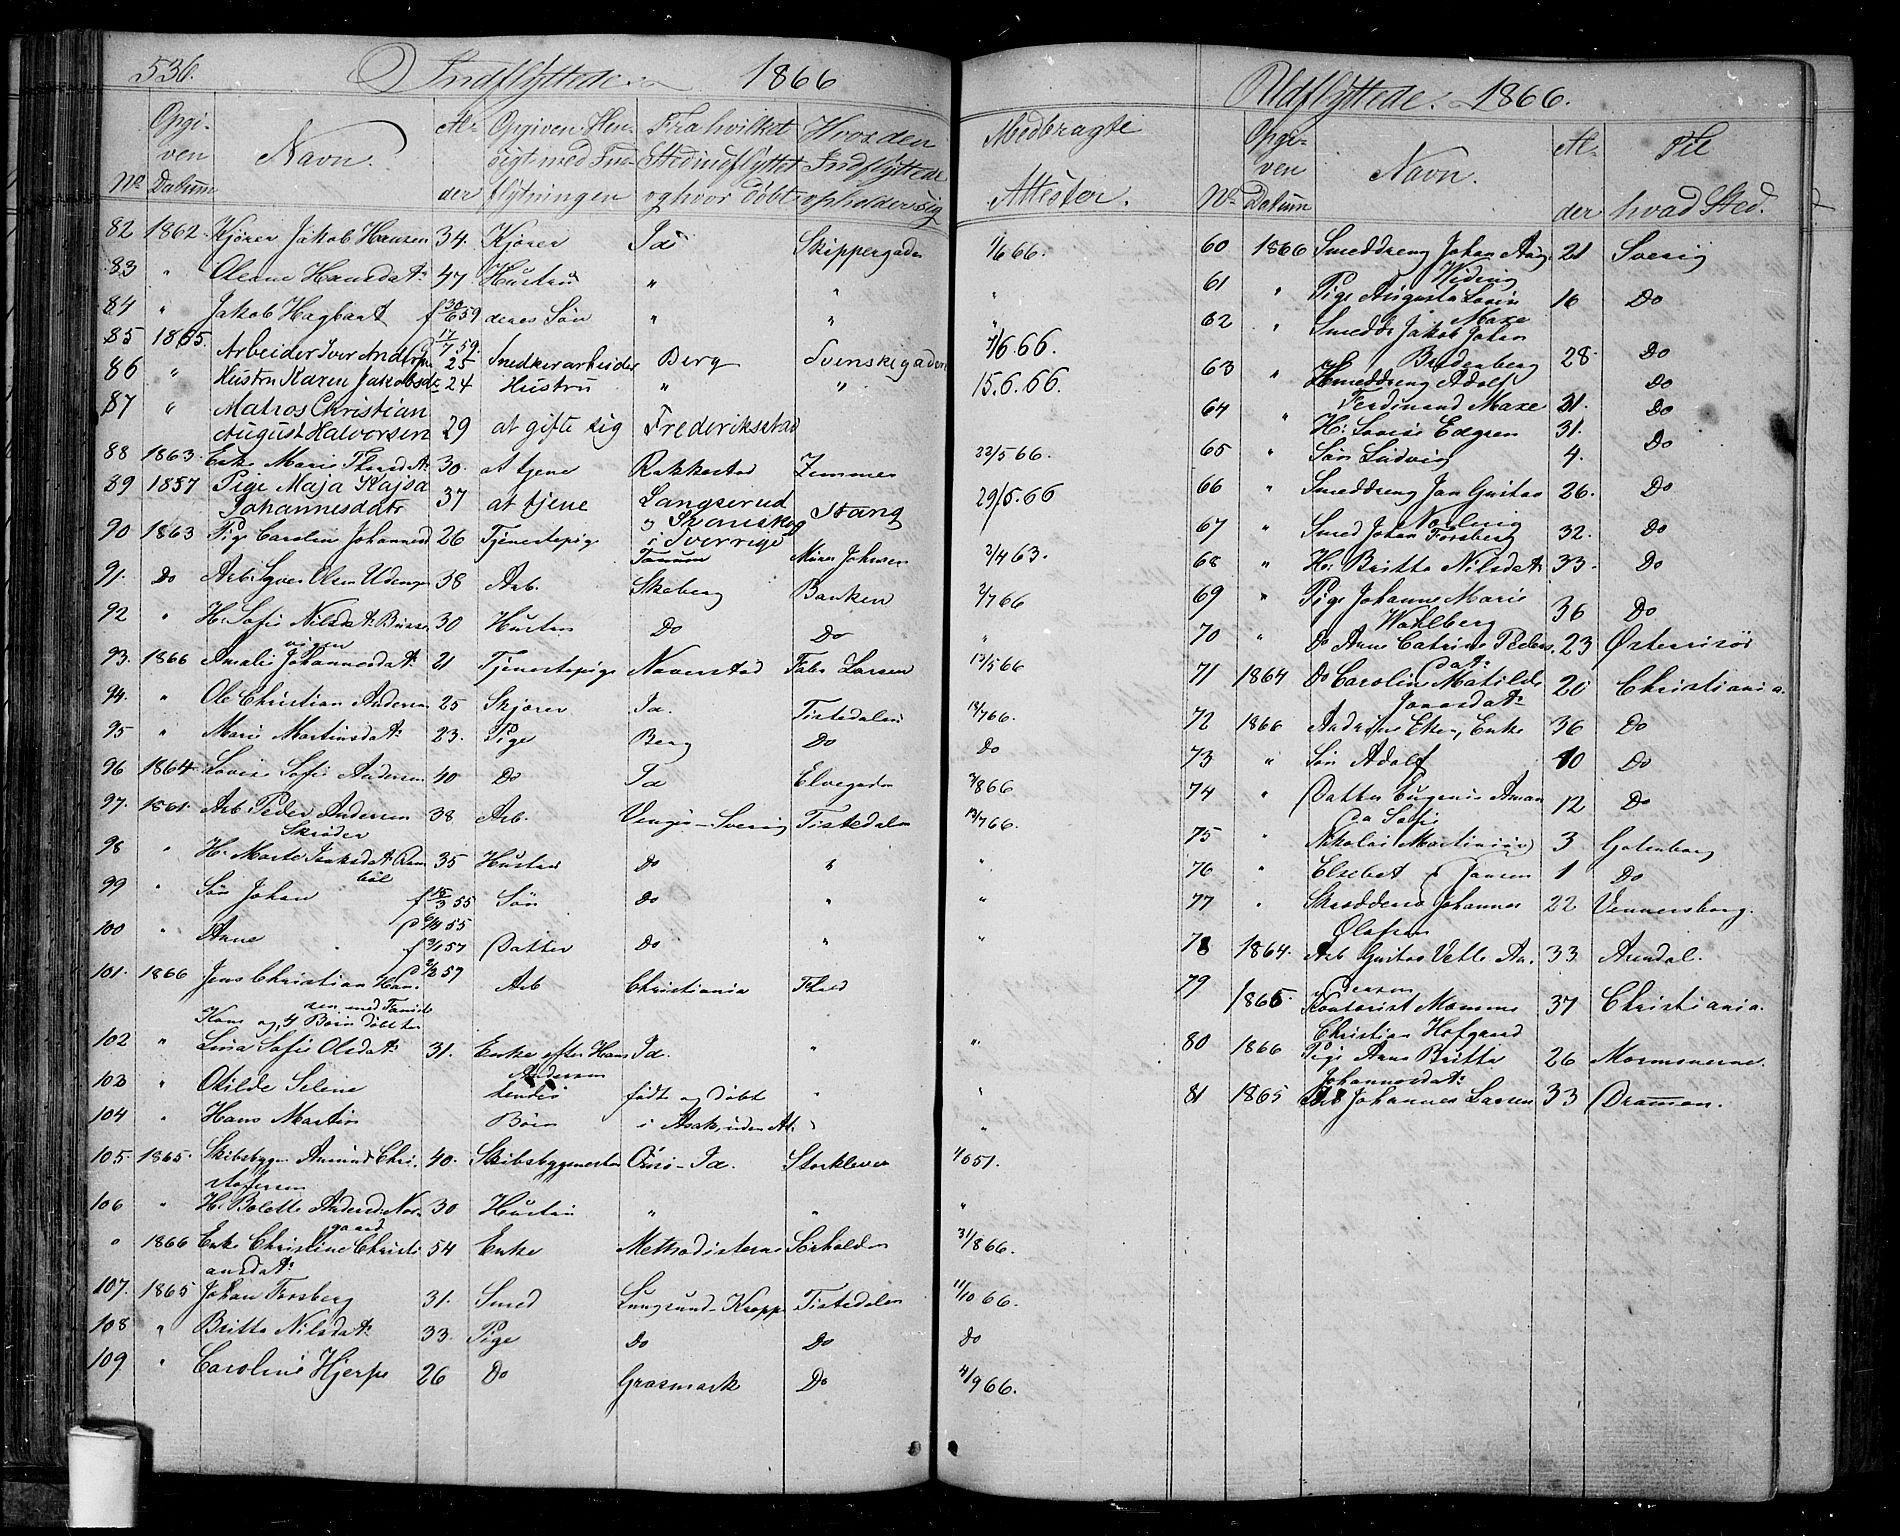 536. Indflyttede 1866
No | Opgiven Datum | Navn. | Alder | Opgiven Hensigt med Indflytningen | Fra hvilket Sted indflyttet og hvor døbt | Hvor den Indflyttede opholder sig | Medbragte Attester.
82 1862. Kjører Jakob Hansen 34. Kjører Id Skippergaden 1/6 66.
83 " Olenne Hansdatr 47 Hustru " " "
84 " Jakob Hagbart f 30/6 59 deres Søn " " "
17/7 59.
85 1865. Arbeider Iver Andersen 25 Snedkerarbeider Berg Svenskegaden 1/6 66.
86 " Hustru Karen Jakobsdr 24 Hustru " " 15.6.66.
87 " Matros Christian
August Halvorsen 29 at gifte sig Frederiksstad
88 1863. Enke Marie 30. at tjene Rakkestad 22/5 66.
89 1857 Pige Maja Kajsa
Johannesdatr 37 at tjene Langserud
Stang 29/5.66
i Sverrige
90 1863 Pige Carolin Johannesd 26 Tjenestepige Tanum Johnsen 2/4 63.
91. Do Arb. Syver Olsen 38 Arb. Skeberg Banken 2/7 66
92 " H. Sofie Nilsdatr 30 Hustru Do Do "
93. 1866 Amalie Johannesdatr 21 Tjenestepige Naverstad Larsen 13/5 66
94. " Ole Christian Andersen 25 Skjører Id. Tistedalen 18/7 66.
95 " Marie Martinsdatr 23. Pige Berg Do Do
96 1864 Lovise Sofie Andersen 40 Do Id Elvegaden 2/8 66
97. 1861. Arb. Peder Andersen
Skrøder 38 Arb. Sverig Tistedalen 13/7 66.
98 " H. Marte Isaksdatr 35 Hustru Do " "
99 " Søn Johan f 15/3 55 Søn Do " "
100 " Anne f 3/1 57 Datter Do " "
101. 1866 Jens Christian Han-
sen med Familie Arb Christiania "
Kone og 4 Børn døbt
102 " Lina Sofie Olsdatr 31. Enke efter Hans Id. " "
Andersen
103 " Otilde Seline tendes født og døbt " "
104 " Hans Martin Børn i Asak, uden At. " "
105. 1865. Skibsbygm Amund Chri-
stofersen 40. Skibsbygmester Id. 51.
106 " H. Bolette Andersd. Nor-
gaard 30 Hustru " " "
" 1866 Enke Christine Christi-
ansdatr 54 Enke Methodisterne Sørhalden 31/8 66.
107. 1865 Johan Forsberg 31. Smed Lungsund-Kropp Tistedalen 11/10 66.
108 " Britta Nilsdatr 33. Pige Do Do Do
109 " Caroline Hjerpe 26 Do Grasmark Do 4/9 66.
Udflyttede. 1866.
No | Opgiven Datum | Navn. | Alder | Til hvad Sted.
60 1866 Smeddreng Johan Aug.
Widing 21 Sverig
61 " Pige Augusta Lovise
Maxe 16 Do
62 " Smedds Jakob Johan
Bredenberg 28. Do
63 " Smeddreng Adolf
Ferdinand Maxe 21. Do
64 " H. Lovise Edgren 31. Do
65 " Søn Ludvig 4. Do
66 " Smeddreng Jan Gustav
Norling 26. Do
67 " Smed Johan Forsberg 32. Do
68 " H. Britta Nilsdatr 33. Do
69 " Pige Johanne Marie
Wahlberg 36 Do
70 " Do Anne Catrine Peders-
datr 23 Østerrisør
71 1864 Do Carolin Matilde
Jonasdatr 20 Christiania.
72 1866 Andrine Enke 36 Do
73 " Søn Adolf 10 Do
74 " Datter Eugenie Aman-
da Sofie 12 Do
75 " Nikolai Martinius 3 Gotenborg
76 " Elsebet Jansen 1 Do
77 " Skrædders Johannes
Olafsen 22 Vennersborg.
78 1864. Arb. Gustav Vetle 33. Arendal.
79 1865. Kontorist Momme
Christian Hofgaard 37 Christiania.
80 1866 Pige Anne Britta
Johannesdatr 26 Mormonerne.
81 1865 Arb Johannes Larsen 33 Dramen.